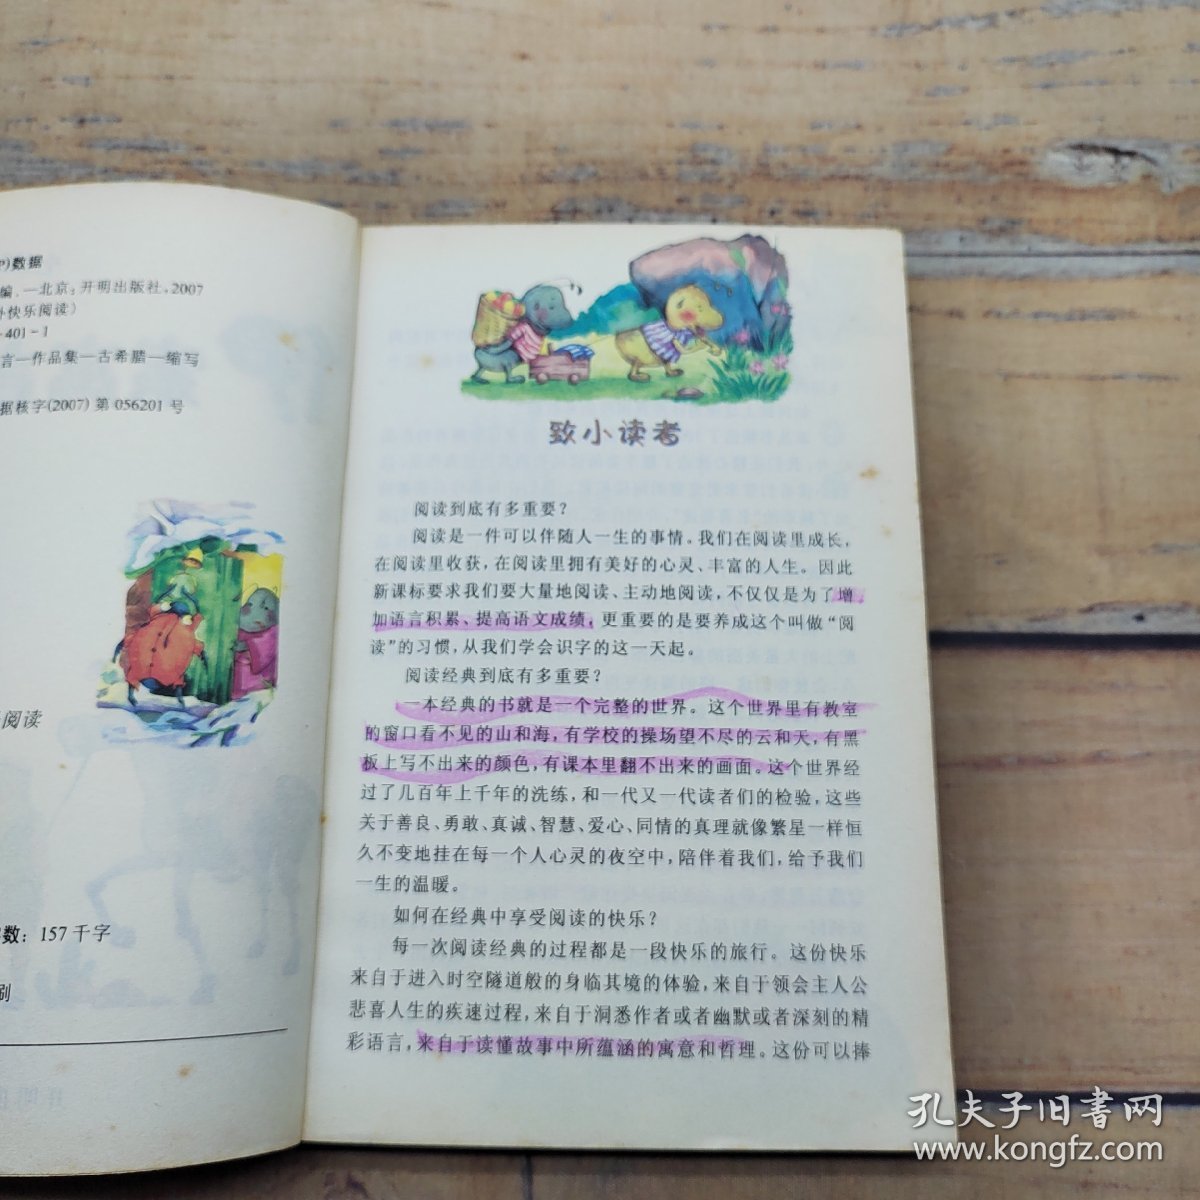 P)数据
编.—北京:开明出版社,2007
外快乐阅读)
-401-1
言—作品集—古希腊—缩写
据核字(2007)第 056201 号
阅读
字数: 157 千字
刷
致小读者
阅读到底有多重要?
阅读是一件可以伴随人一生的事情。我们在阅读里成长,
在阅读里收获,在阅读里拥有美好的心灵、丰富的人生。因此
新课标要求我们要大量地阅读、主动地阅读,不仅仅是为了增
加语言积累、提高语文成绩,更重要的是要养成这个叫做“阅
读”的习惯,从我们学会识字的这一天起。
阅读经典到底有多重要?
一本经典的书就是一个完整的世界。这个世界里有教室
的窗口看不见的山和海,有学校的操场望不尽的云和天,有黑
板上写不出来的颜色,有课本里翻不出来的画面。这个世界经
过了几百年上千年的洗练,和一代又一代读者们的检验,这些
关于善良、勇敢、真诚、智慧、爱心、同情的真理就像繁星一样恒
久不变地挂在每一个人心灵的夜空中,陪伴着我们,给予我们
一生的温暖。
如何在经典中享受阅读的快乐?
每一次阅读经典的过程都是一段快乐的旅行。这份快乐
来自于进入时空隧道般的身临其境的体验,来自于领会主人公
悲喜人生的疾速过程,来自于洞悉作者或者幽默或者深刻的精
彩语言,来自于读懂故事中所蕴涵的寓意和哲理。这份可以捧
孔夫子旧书网
www.kongfz.com